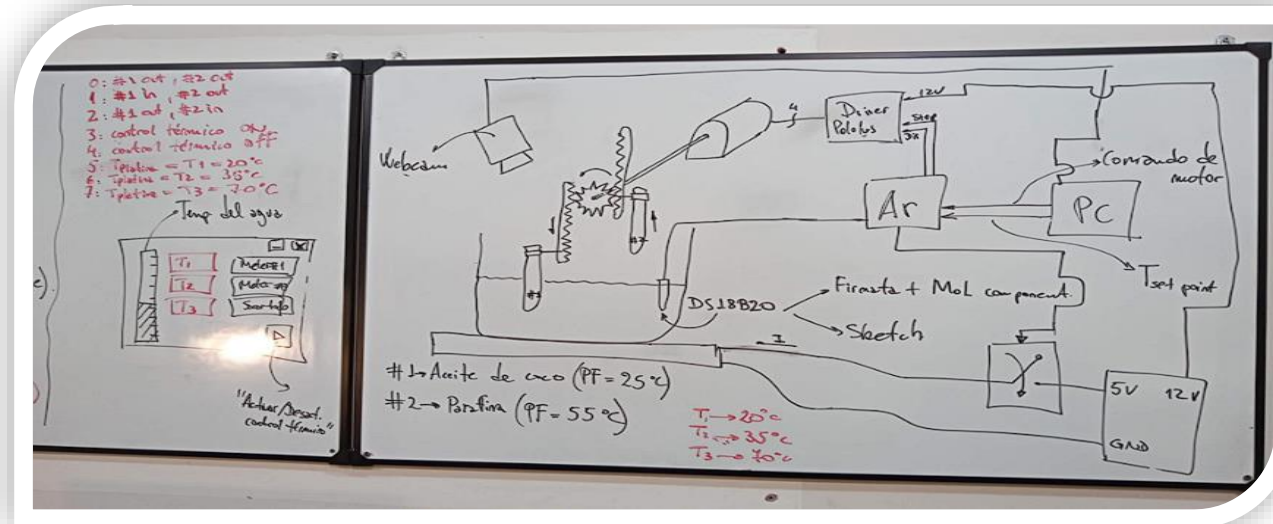 0: #1 out, #2 out
1: #1 in, #2 out
2: #1 out, #2 in
3: control térmico ON
4: control térmico off
5: Tplatina = T1 = 20°C
6: Tplatina = T2 = 35°C
7: Tplatina = T3 = 70°C
Temp del agua
T1
T2
T3
"Activar/Desact.
control térmico"
c).
Webcam
4
Driver
Pololus
12V
Step
Ar
PC
Comando de
motor
Tset point
#1
#2
DS18B20
Firmata + MoL component.
Sketch
I
5V
12V
GND
#1→Aceite de coco (PF=25°C)
#2→Parafina (PF=55°C)
T1→20°C
T2→35°C
T3→70°C